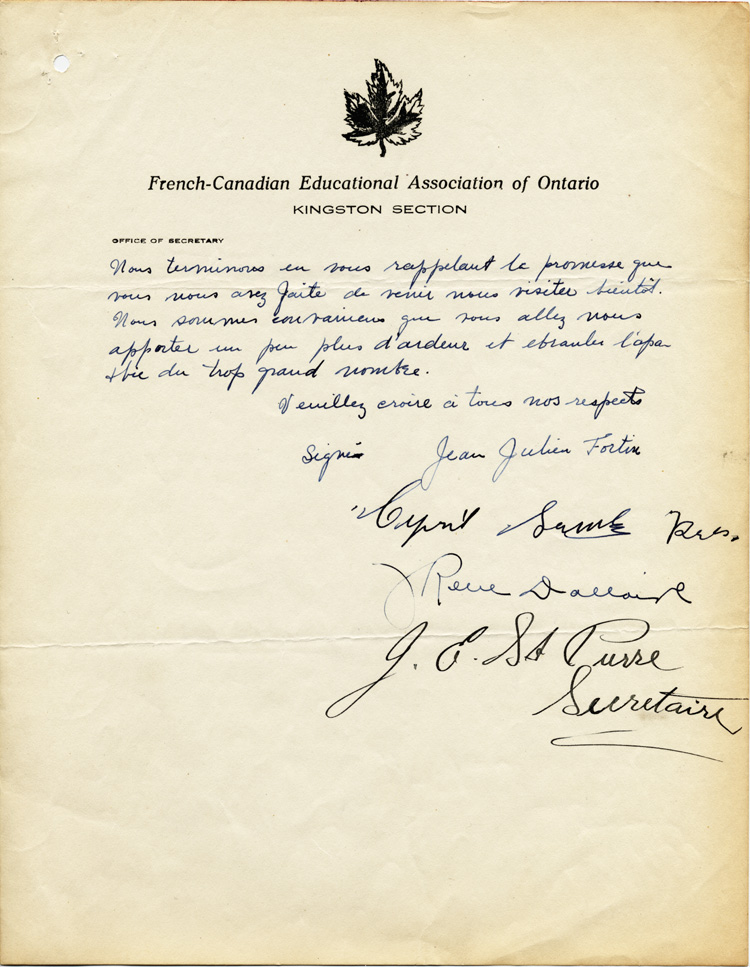 French-Canadian Educational Association of Ontario
KINGSTON SECTION
OFFICE OF SECRETARY
Nous terminons en vous rappelant la promesse que
vous nous avez faite de venir nous visiter bientôt.
Nous sommes convaincus que vous allez nous
apporter un peu plus d'ardeur et ebranler l'apa
thie du trop grand nombre.
Veuillez croire à tous nos respects
Signé Jean Julien Fortin
Pres.
Rene Dallaire
J. E. St Pierre
Secretaire